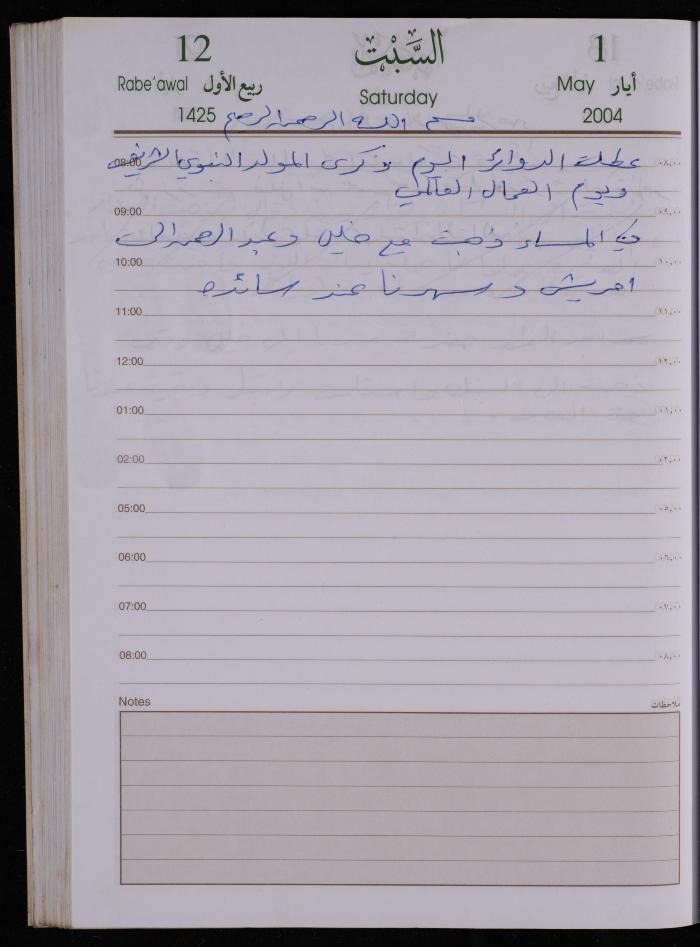 12 السَّبْت 1
Rabe'awal ربيع الأول Saturday May أيار
1425 2004
بسم الله الرحمن الرحيم
08:00 عطلت الدوائر اليوم ذكرى المولد النبوي الشريف ٠٨,٠٠
ويوم العمال العالمي
09:00 ٠٩,٠٠
في المساء ذهبت مع خليل وعبد الرحمن الى
10:00 ١٠,٠٠
امريش و سهرنا عند سائده
11:00 ١١,٠٠
12:00 ١٢,٠٠
01:00 ٠١,٠٠
02:00 ٠٢,٠٠
05:00 ٠٥,٠٠
06:00 ٠٦,٠٠
07:00 ٠٧,٠٠
08:00 ٠٨,٠٠
Notes ملاحظات